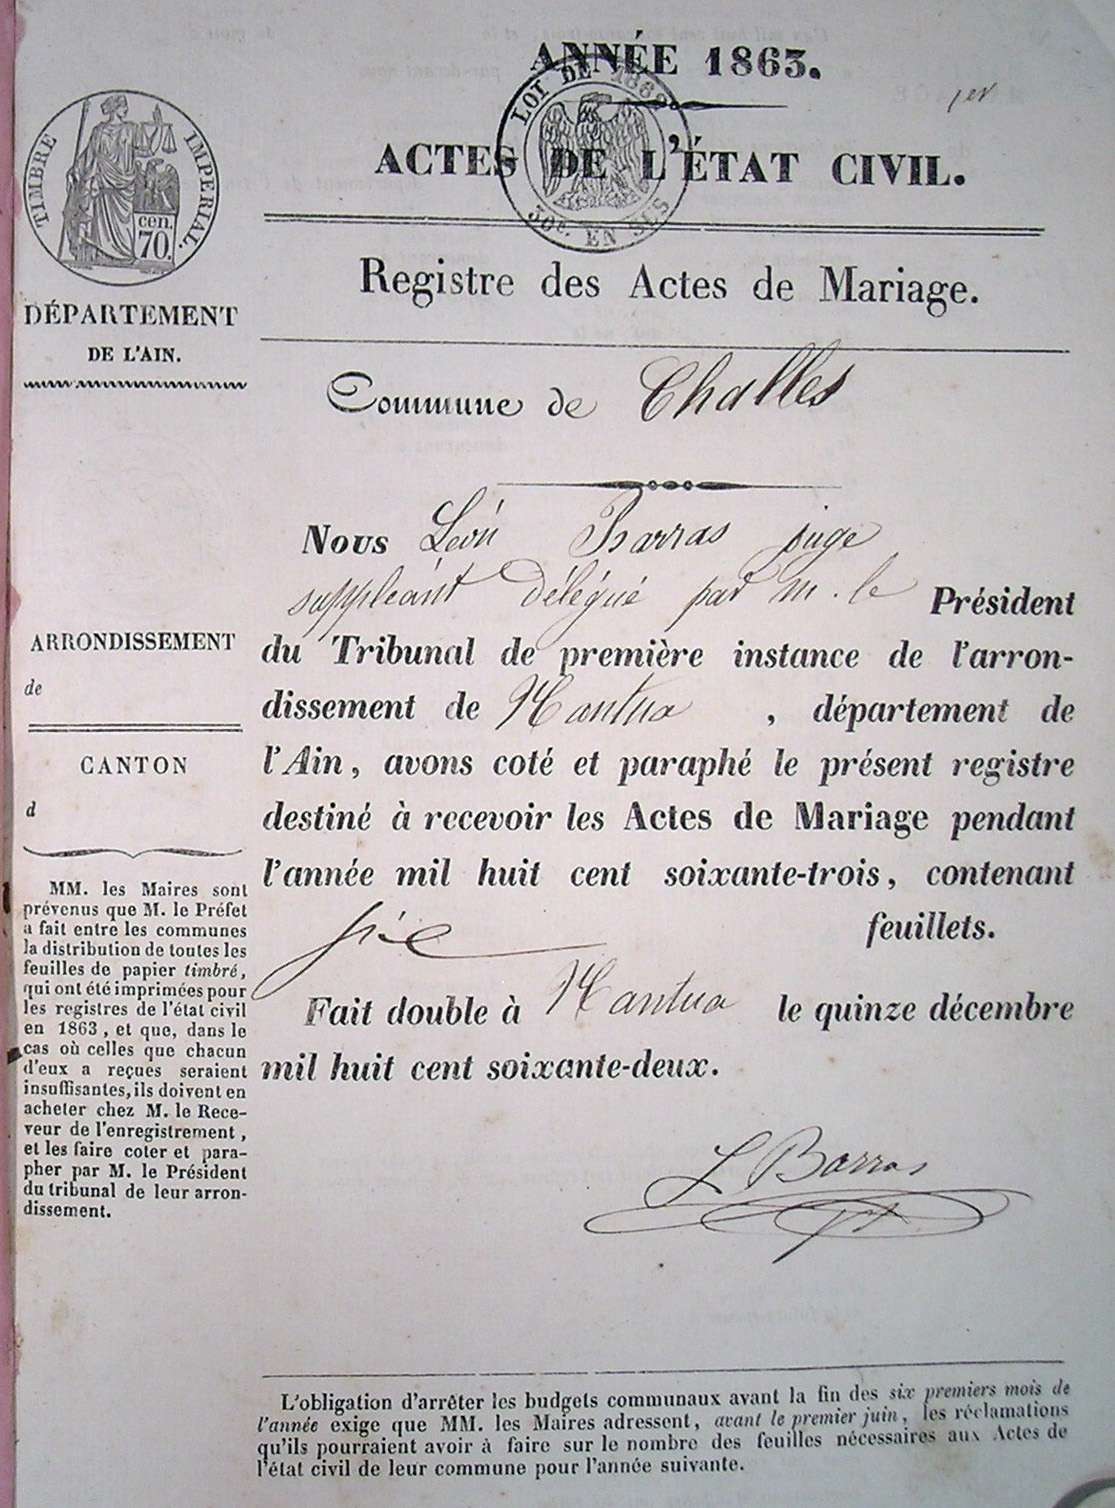 ANNÉE 1863.
1er
TIMBRE IMPERIAL.
cen.
70.
LOI DE 1862
30c. EN SUS
ACTES DE L'ÉTAT CIVIL.
Registre des Actes de Mariage.
DÉPARTEMENT
DE L'AIN.
Commune de Challes
Nous Léon Barras juge
suppléant délégué par m. le Président
du Tribunal de première instance de l'arron-
dissement de Nantua , département de
l'Ain, avons coté et paraphé le présent registre
destiné à recevoir les Actes de Mariage pendant
l'année mil huit cent soixante-trois, contenant
six feuillets.
Fait double à Nantua le quinze décembre
mil huit cent soixante-deux.
L Barras
ARRONDISSEMENT
de
CANTON
d
MM. les Maires sont
prévenus que M. le Préfet
a fait entre les communes
la distribution de toutes les
feuilles de papier timbré,
qui ont été imprimées pour
les registres de l'état civil
en 1863, et que, dans le
cas où celles que chacun
d'eux a reçues seraient
insuffisantes, ils doivent en
acheter chez M. le Rece-
veur de l'enregistrement,
et les faire coter et para-
pher par M. le Président
du tribunal de leur arron-
dissement.
L'obligation d'arrêter les budgets communaux avant la fin des six premiers mois de
l'année exige que MM. les Maires adressent, avant le premier juin, les réclamations
qu'ils pourraient avoir à faire sur le nombre des feuilles nécessaires aux Actes de
l'état civil de leur commune pour l'année suivante.